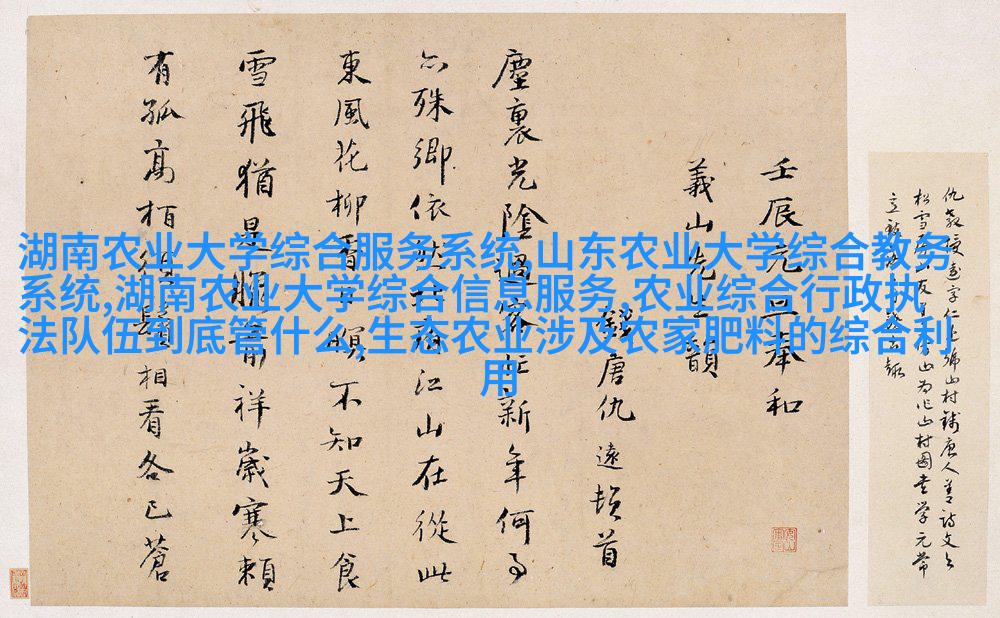 湖南农业大学综合服务系统,山东农业大学综合教务
系统,湖南农业大学综合信息服务,农业综合行政执
法队伍到底管什么,生态农业涉及农家肥料的综合利
用
壬辰元旦奉和
義山先生韻
錢唐仇遠頓首
塵裏光陰過客忙新年何事
殊鄉依江山在從此
東風花柳香不知天上食
雪飛猶是祥歲寒賴
有孤高柏鬚相看各已蒼
仇教授字仁號山村錢唐人善詩文
松雪友山為作山村圖書學元常